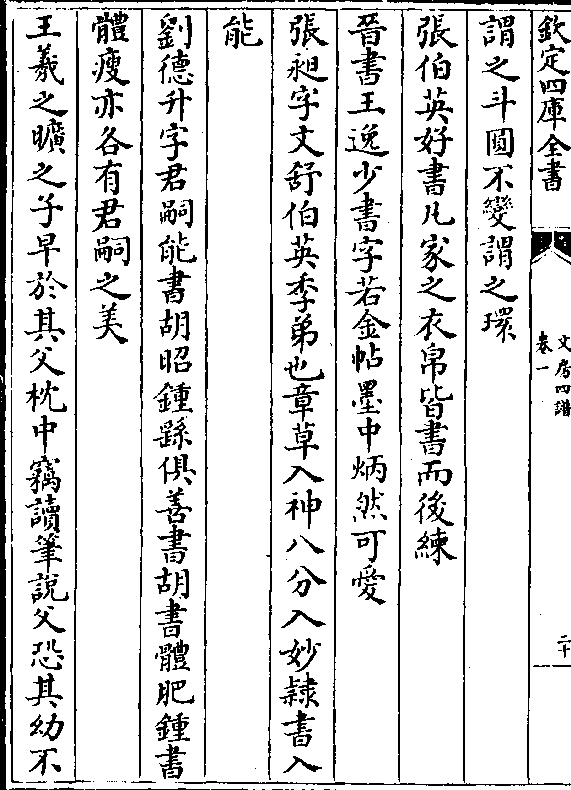 欽定四庫全書
文房四譜
卷一
二十
謂之斗圓不變謂之環
張伯英好書凡家之衣帛皆書而後練
晉書王逸少書字若金帖墨中炳然可愛
張昶字文舒伯英季弟也章草入神八分入妙隸書入
能
劉德升字君嗣能書胡昭鍾繇俱善書胡書體肥鍾書
體瘦亦各有君嗣之美
王羲之曠之子早於其父枕中竊讀筆說父恐其幼不